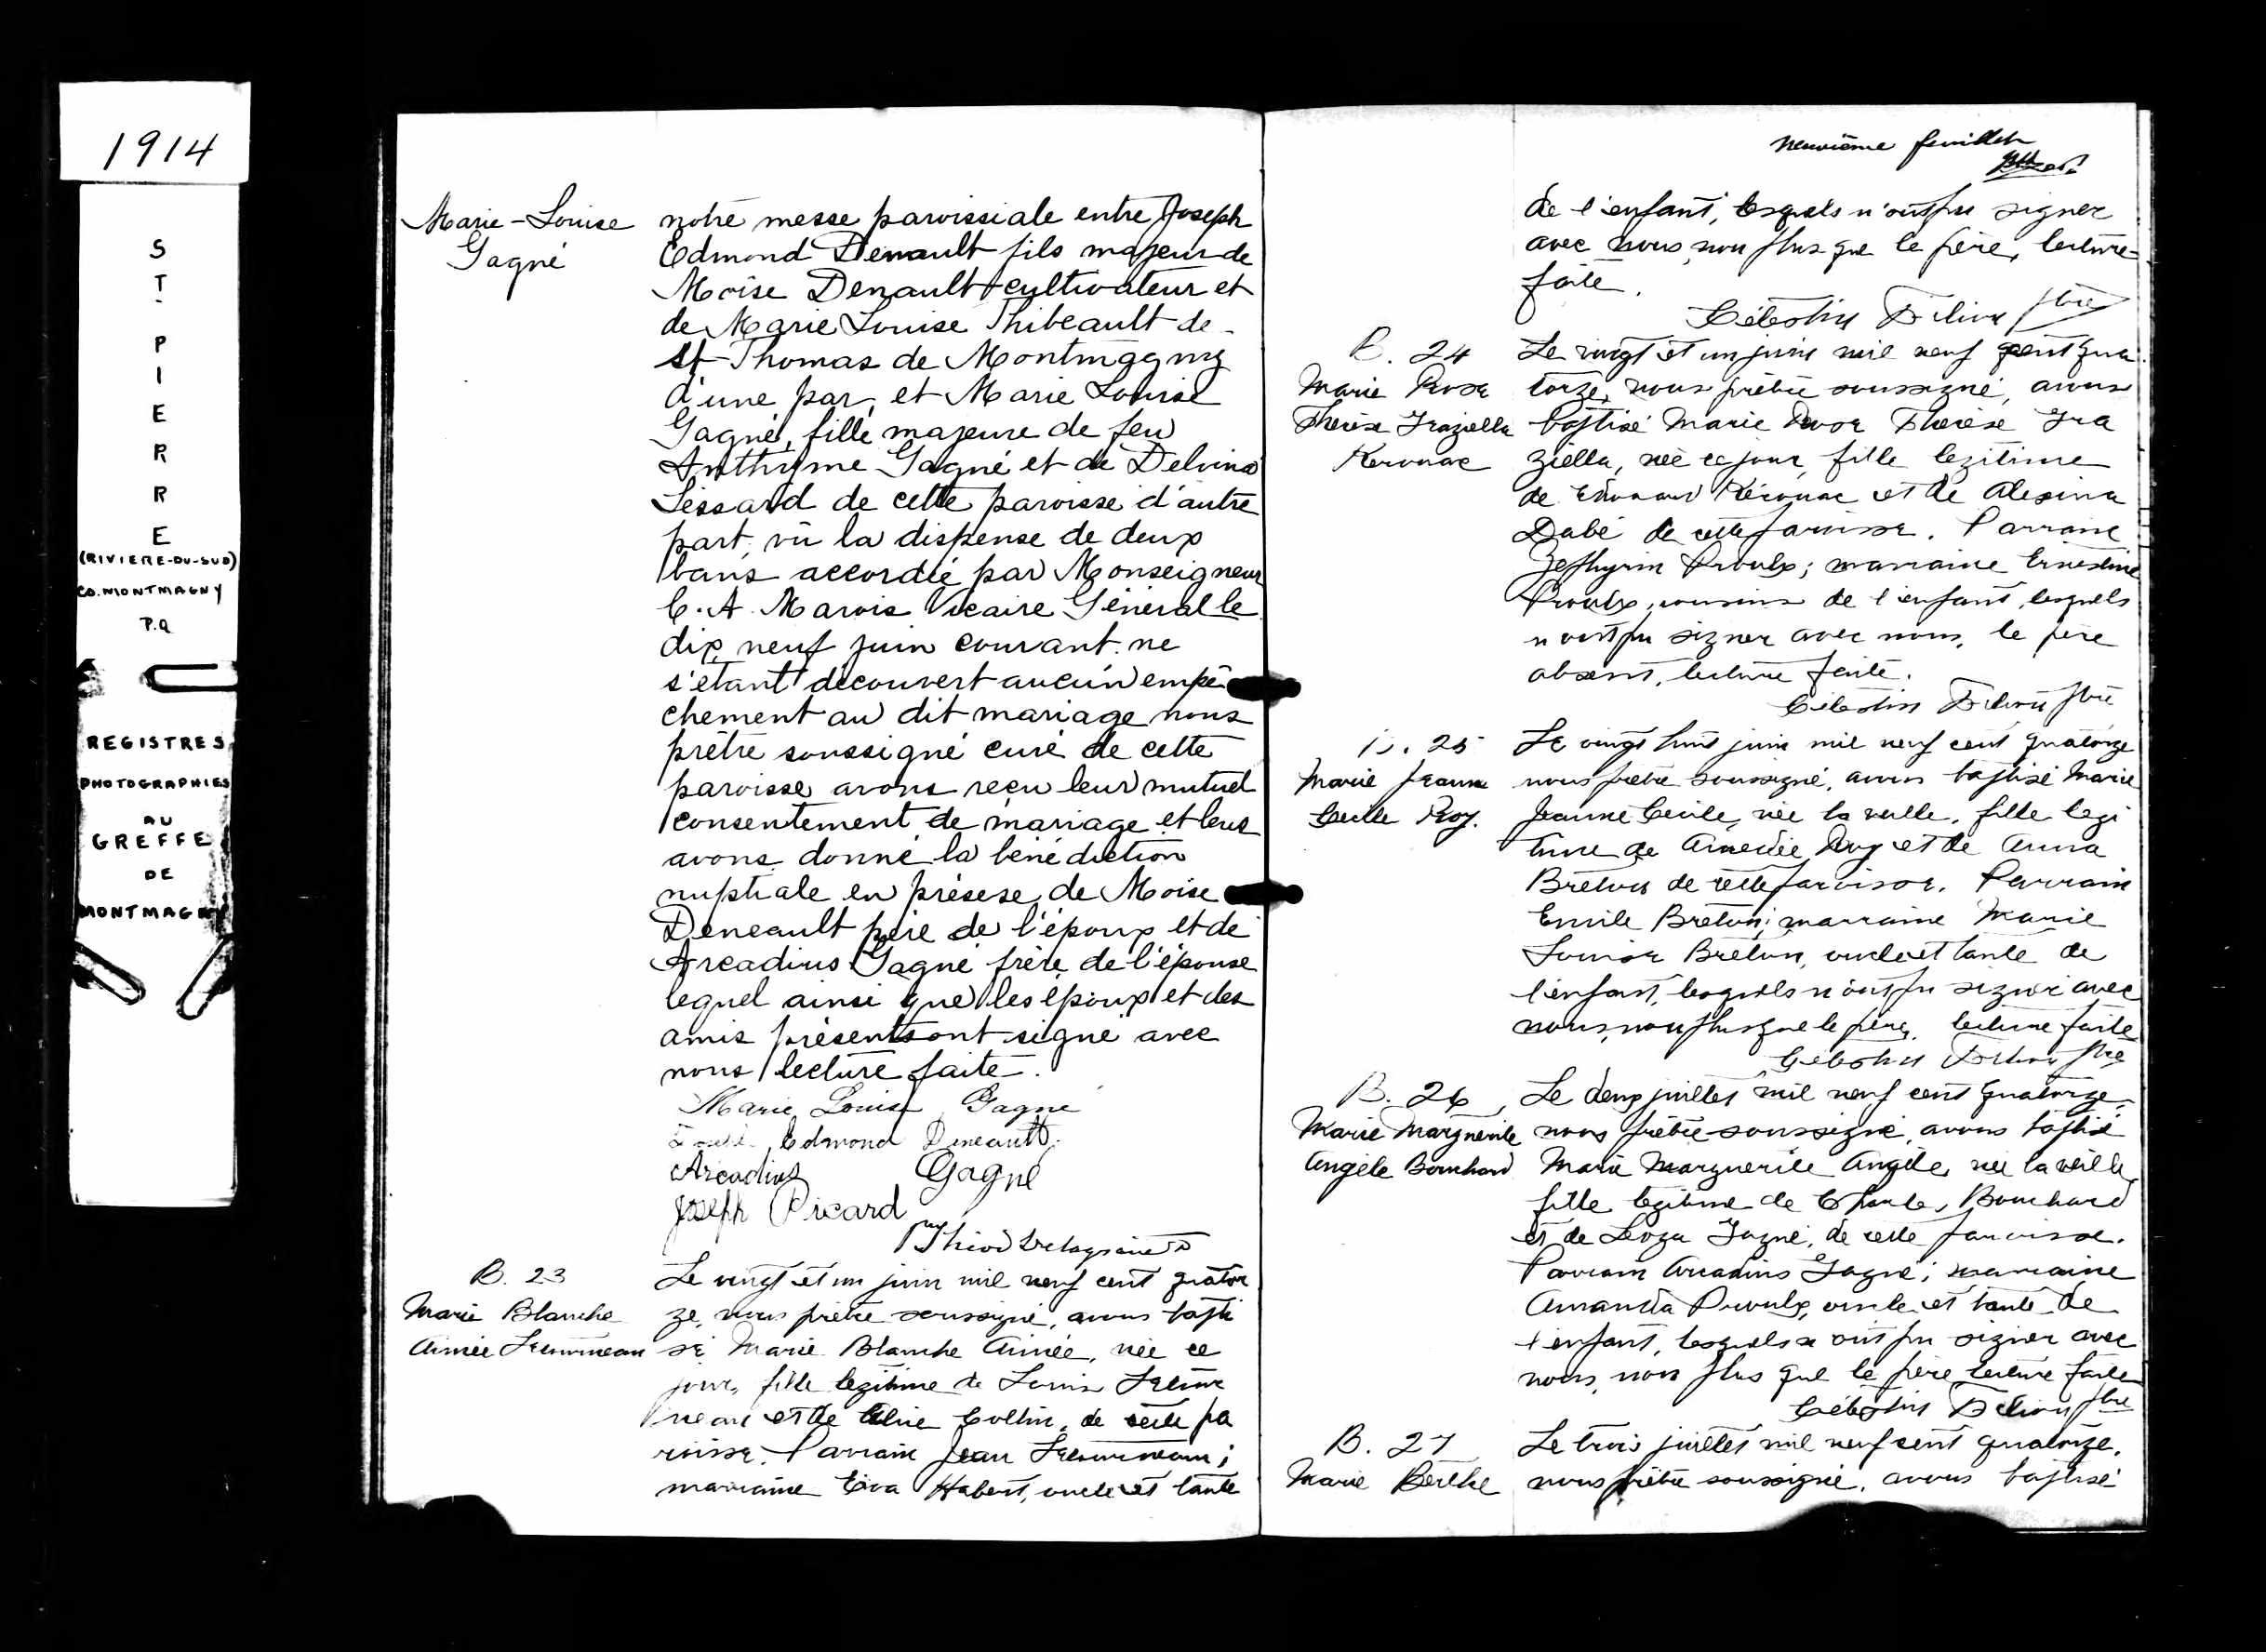 1914
ST-PIERRE
(RIVIERE-DU-SUD)
CO. MONTMAGNY
P.Q
REGISTRES
PHOTOGRAPHIES
AU
GREFFE
DE
MONTMAGNY
Marie-Louise
Gagné
notre messe paroissiale entre Joseph
Edmond Denault fils majeur de
Moïse Denault cultivateur et
de Marie Louise Thibeault de
St Thomas de Montmagny
d'une par, et Marie Louise
Gagné, fille majeure de feu
Anthyme Gagné et de Delvina
Lessard de cette paroisse d'autre
part, vu la dispense de deux
bans accordée par Monseigneur
C. A. Marois Vicaire Général le
dix neuf juin courant. ne
s'étant découvert aucun empê
chement au dit mariage nous
prêtre soussigné curé de cette
paroisse avons reçu leur mutuel
consentement de mariage et leur
avons donné la bénédiction
nuptiale en présese de Moïse
Deneault père de l'époux et de
Arcadius Gagné frère de l'épouse
lequel ainsi que les époux et des
amis présents ont signé avec
nous lecture faite.
Marie Louise Gagné
Edmond Deneault
Arcadius Gagné
Joseph Picard
B. 23
Marie Blanche
Aimée Letourneau
Le vingt et un juin mil neuf cent quator
ze, nous prêtre soussigné, avons bapti
sé Marie Blanche Aimée, née ce
jour, fille légitime de Louis Letour
neau et de Collin, de cette pa
roisse. Parrain Jean Letourneau;
marraine Eva Habert, oncle et tante
neuvième feuillet
de l'enfant, lesquels n'ont pu signer
avec nous, non plus que le père, lecture
faite.
Célestin ptre
B. 24
Marie Rosa
Thérèse Graziella
Kerouac
Le vingt et un juin mil neuf cent qua
torze, nous prêtre soussigné, avons
baptisé Marie Rosa Thérèse Gra
ziella, née ce jour, fille légitime
de Edouard Kérouac et de Alexina
Dubé de cette paroisse. Parrain
Zephyrin Proulx; marraine Ernestine
Proulx, cousins de l'enfant, lesquels
n'ont pu signer avec nous, le père
absent, lecture faite.
Célestin ptre
B. 25
Marie Jeanne
Cecile Roy.
Le vingt huit juin mil neuf cent quatorze
nous prêtre soussigné, avons baptisé Marie
Jeanne Cecile, née la veille, fille légi
time de Amédée Roy et de Anna
Breton de cette paroisse. Parrain
Emile Breton; marraine Marie
Louise Breton, oncle et tante de
l'enfant, lesquels n'ont pu signer avec
nous, non plus que le père, lecture faite
Célestin ptre
B. 26
Marie Marguerite
Angèle Bouchard
Le deux juillet mil neuf cent quatorze,
nous prêtre soussigné, avons baptisé
Marie Marguerite Angèle, née la veille
fille légitime de Charles Bouchard
et de Gagné, de cette paroisse.
Parrain Arcadius Gagné; marraine
Amanda Proulx, oncle et tante de
l'enfant, lesquels n'ont pu signer avec
nous, non plus que le père lecture faite
Célestin ptre
B. 27
Marie Berthe
Le trois juillet mil neuf cent quatorze,
nous prêtre soussigné, avons baptisé